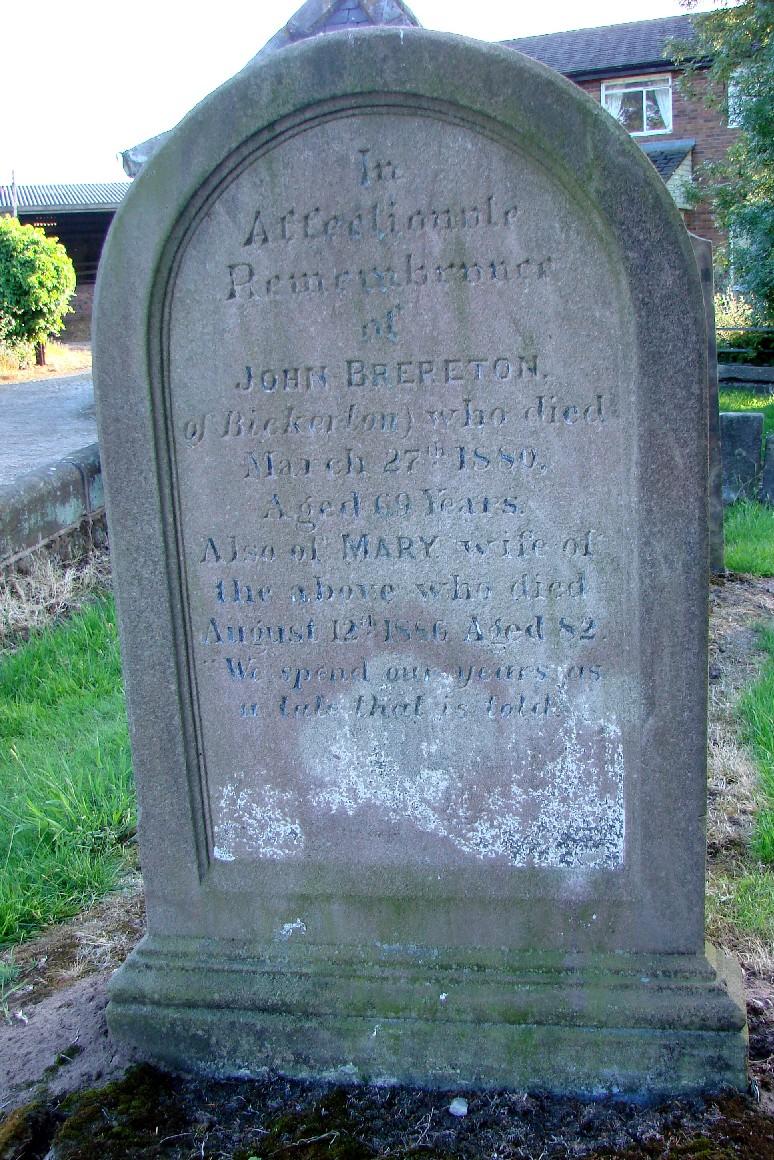 In
Affectionate
Remembrance
of
JOHN BRERETON.
of Bickerton) who died
March 27th 1880,
Aged 69 Years.
Also of MARY wife of
the above who died
August 12th 1886 Aged 82.
"We spend our years as
a tale that is told.